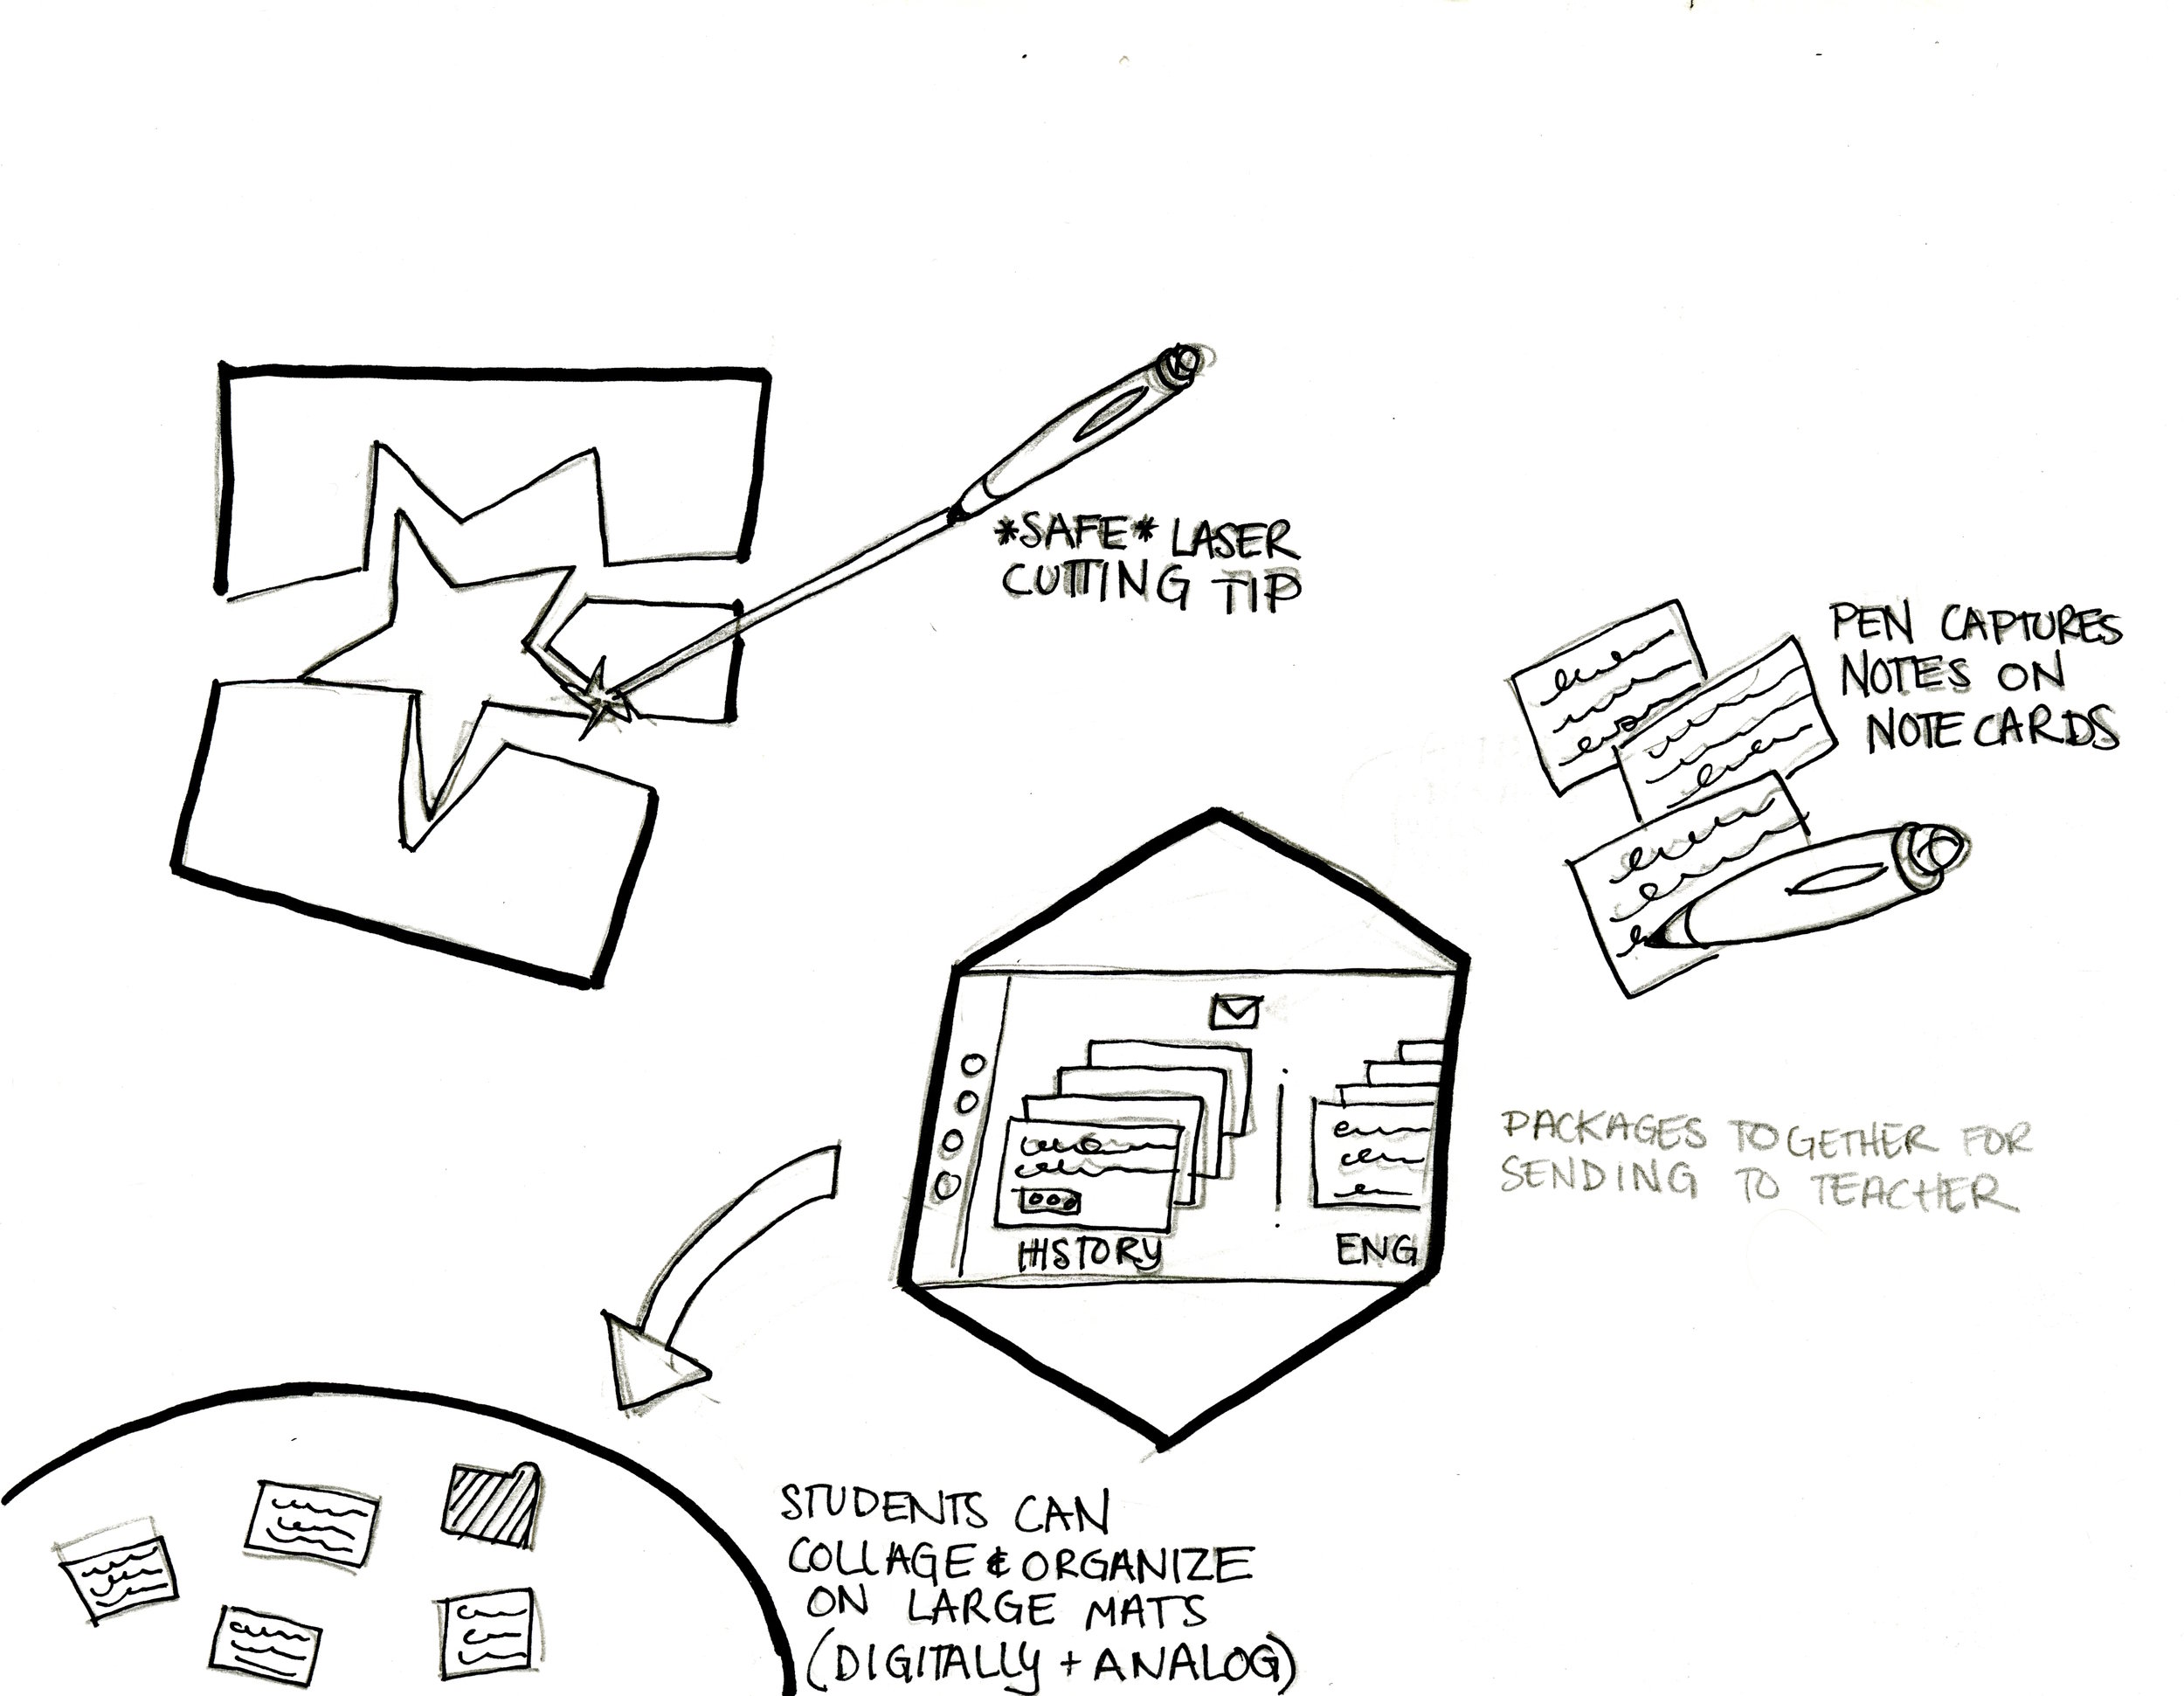 *SAFE* LASER
CUTTING TIP
PEN CAPTURES
NOTES ON
NOTE CARDS
HISTORY
ENG
PACKAGES TOGETHER FOR
SENDING TO TEACHER
STUDENTS CAN
COLLAGE & ORGANIZE
ON LARGE MATS
(DIGITALLY + ANALOG)